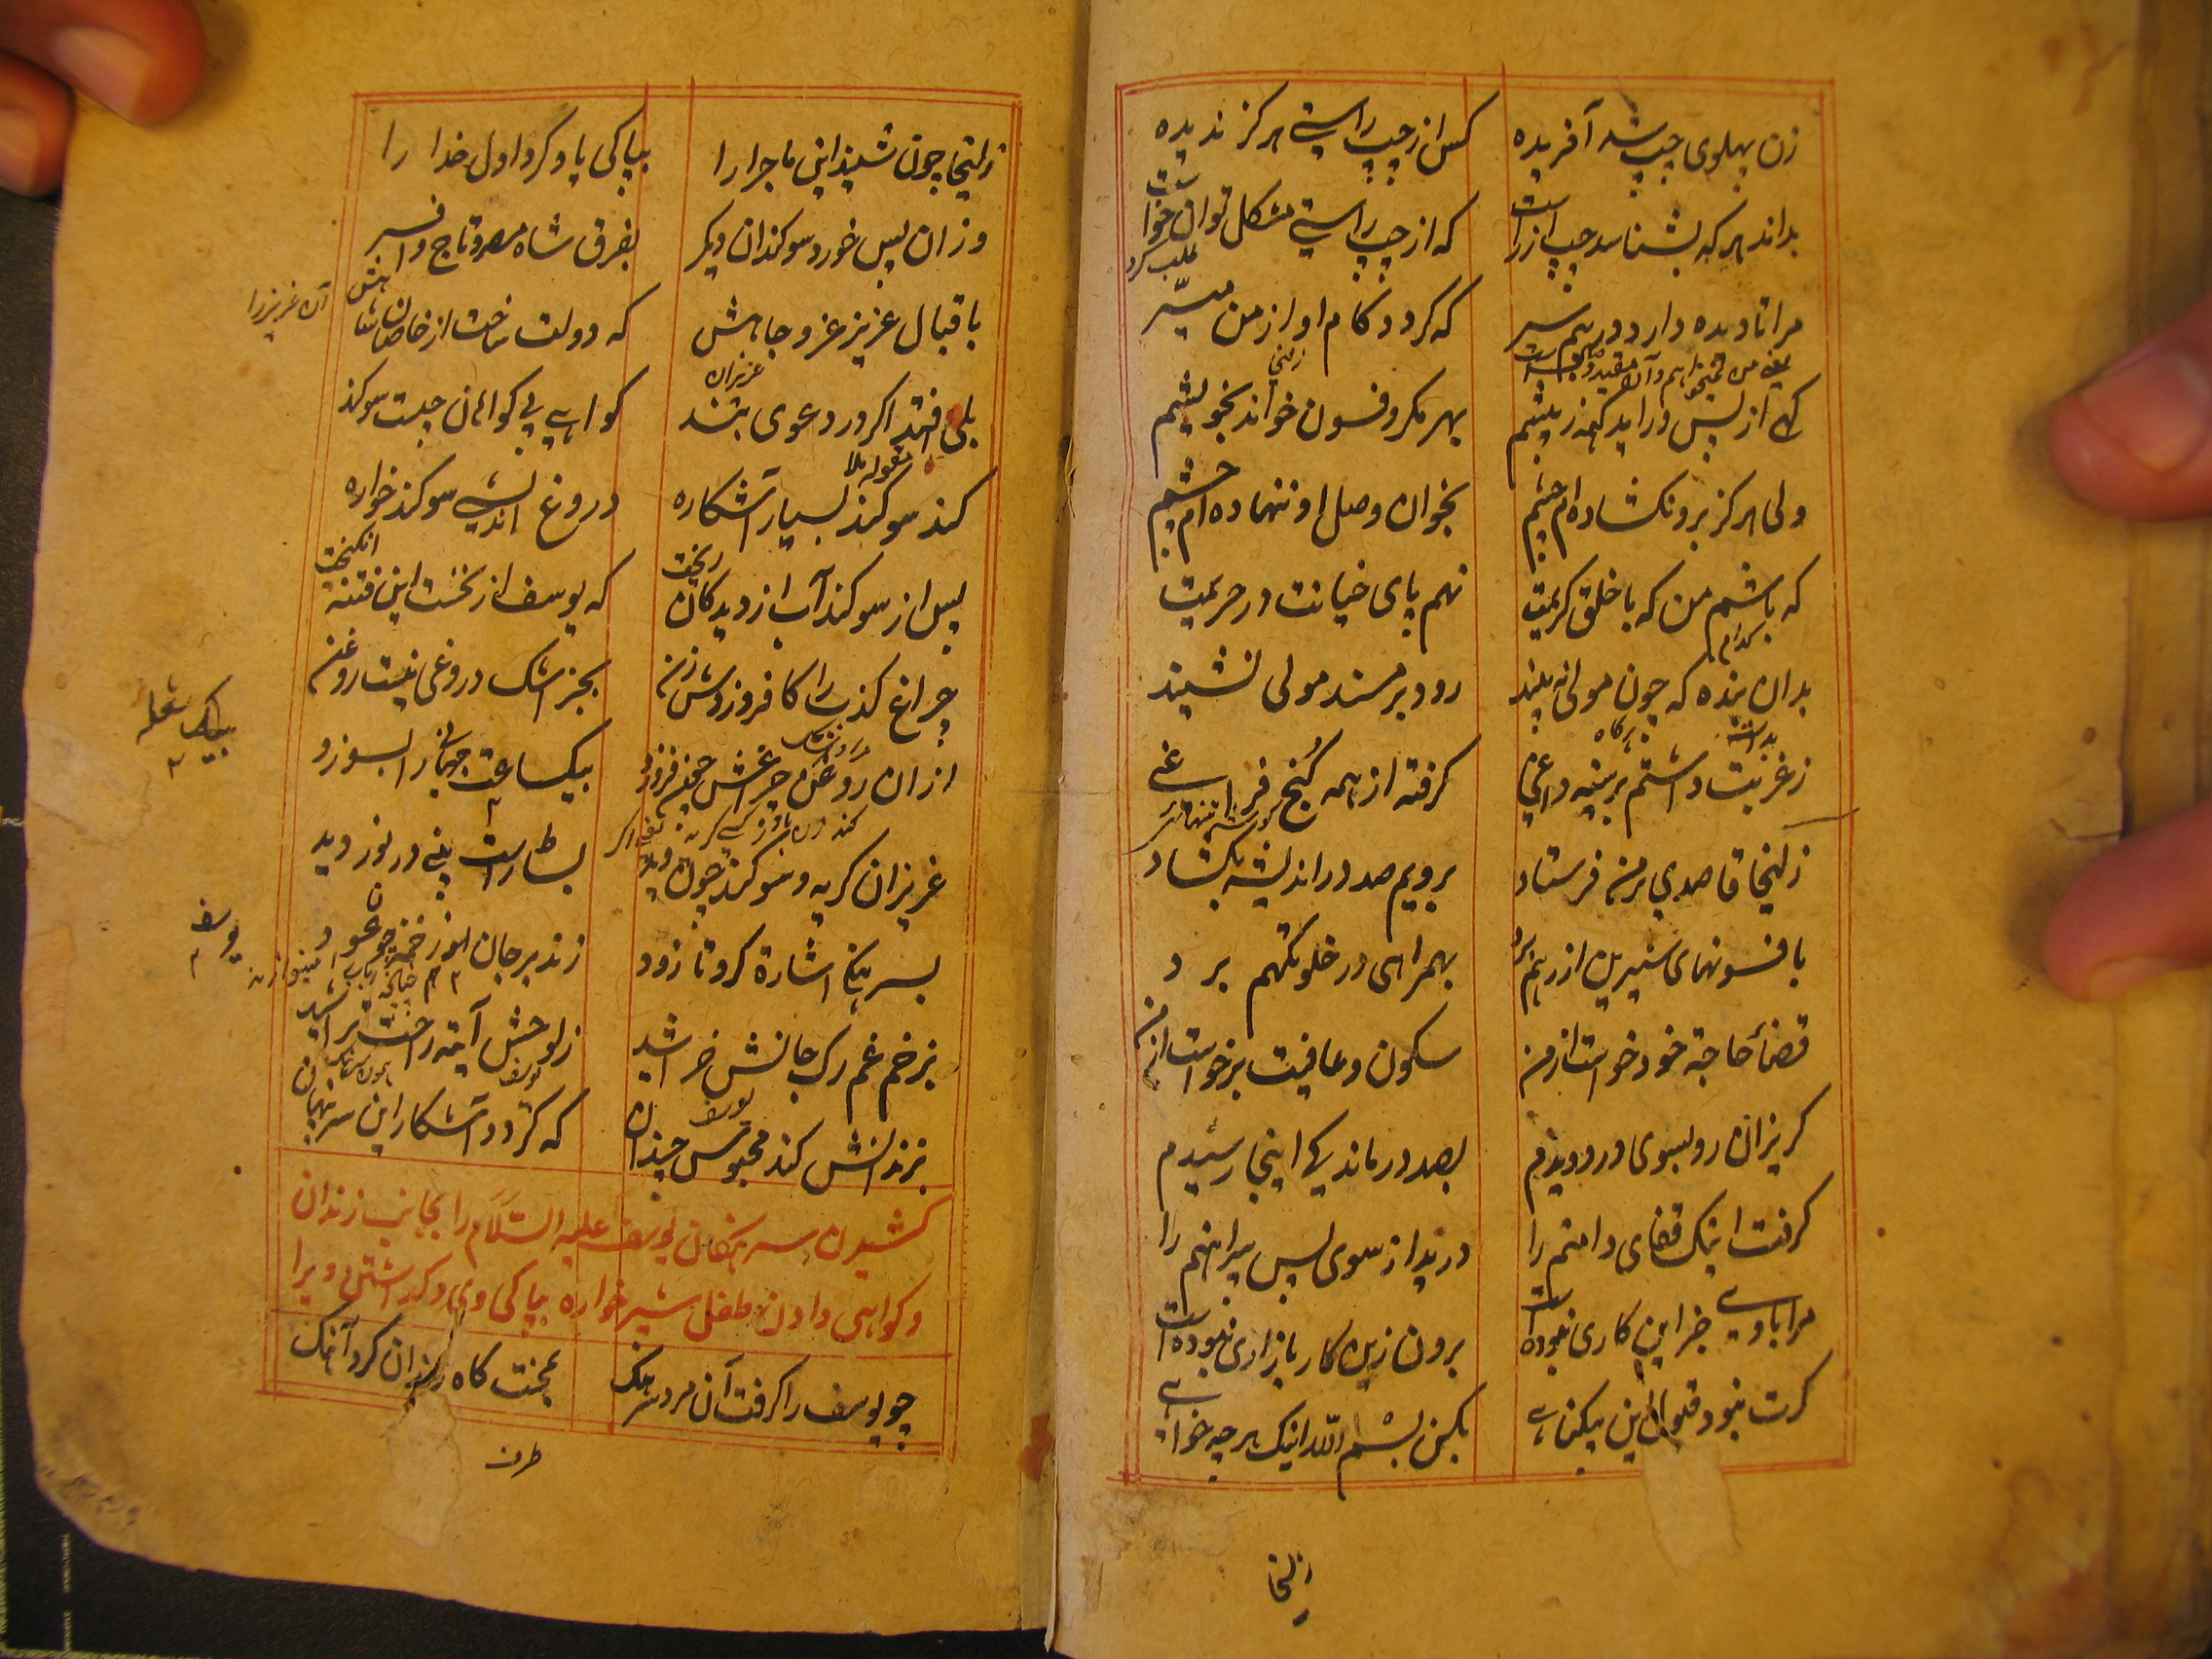 زن پهلوی چپ شد آفریده کس از چپ راستی هرکز ندیده
بداند هرکه بشناسد چپ از راست که از چپ راستی مشکل توان خواست
طلب کرد
مرا تا دیده دارد در پیم سر که کردد کام او از من میسّر
کهی از پس در آید که ز پیشم بهر مکر و فسون خواند بخویشم
زلیخا
ولی هرکز برو نکشاده ام چشم بخوان وصل او ننهاده ام چشم
که باشم من که با خلق کریمت نهم پای خیانت در حریمت
بدان بنده که چون مولا نه بیند رود بر مسند مولی نشیند
ز غربت داشتم بر سینه داغی کرفته از همه کنج فراغی
زلیخا قاصدی بر من فرستاد برویم صد در اندیشه بکشاد
بافسونهای شیرین از رهم برد بهمراهی در خلوتکهم برد
قضائ حاجة خود خواست از من سکون و عافیت برخواست از من
کریزان رو بسوی در دویدم بصد درماندیکی اینجا رسیدم
کرفت اینک قفای دامنم را درید از سوی پس پیراهنم را
مرا با وی جز این کاری نبوده است برون زین کار بازاری نبوده است
کرت نبود قبول این بیکناهی بکن بسم الله اینک هرچه خواهی
زلیخا
زلیخا چون شنید این ماجرا را بپاکی یاد کرد اول خدا را
وزان پس خورد سوکندان دیکر بفرق شاه مصر و تاج و افسر
باقبال عزیز عز و جاهش که دولت ساخت از خاصان شاهش
آن عزیز را
بلی افتد اکر در دعوی بتند کواهی بی کواهان چیست سوکند
عزیزان
کند سوکند بسیار آشکاره دروغ اندیشی سوکند خواره
پس از سوکند آب از دیدکان ریخت که یوسف از نخست این فتنه انکیخت
چراغ کذب را کافروزدش زن بجز اشک دروغی نیست روغن
ازان روغن چراغش چون فروزد بیکساعت جهانی را بسوزد
بیک شعله
عزیز ان کریه و سوکند چون دید بساط راست بینی در نوردید
بسرهنکی اشارة کرد تا زود زند بر جان او زخمه چو عود
یوسف
بزخم غم رک جانش خراشید ز لوحش آیة رحمت تراشید
بزندانش کند محبوس چندان که کردد آشکار این سر پنهان
یوسف
کشیدن سرهنکان یوسف علیه السّلام را بجانب زندان
و کواهی دادن طفل شیرخواره بپاکی وی و کذاشتن ویرا
چو یوسف را کرفت آن مرد سرهنک بمحنت کاه زندان کرد آهنک
طرف